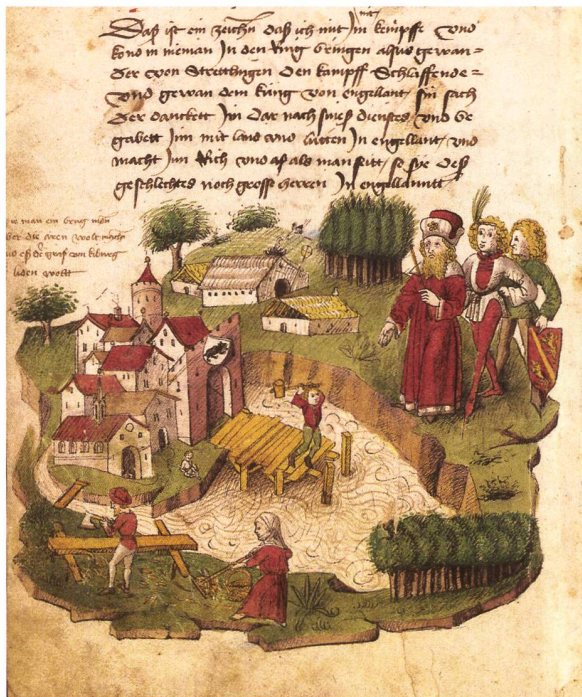 Das ist ein zeichen das ich mit Im kempffe und
kond in nieman In den Ring bringen alsus gewan
der von Stretlingen den kampff Schlaffende
und gewan dem küng von engellant sin sach
der danckett Im dar nach sines dienstes und be
gabett Inn mit land und lütten In engellant und
macht Inn Rich und als man seitt so sye des
geschlechtes noch grosse herren In engellannt
wie man ein brug
über die aren wolt
und es der graf von kiburg
liden wolt